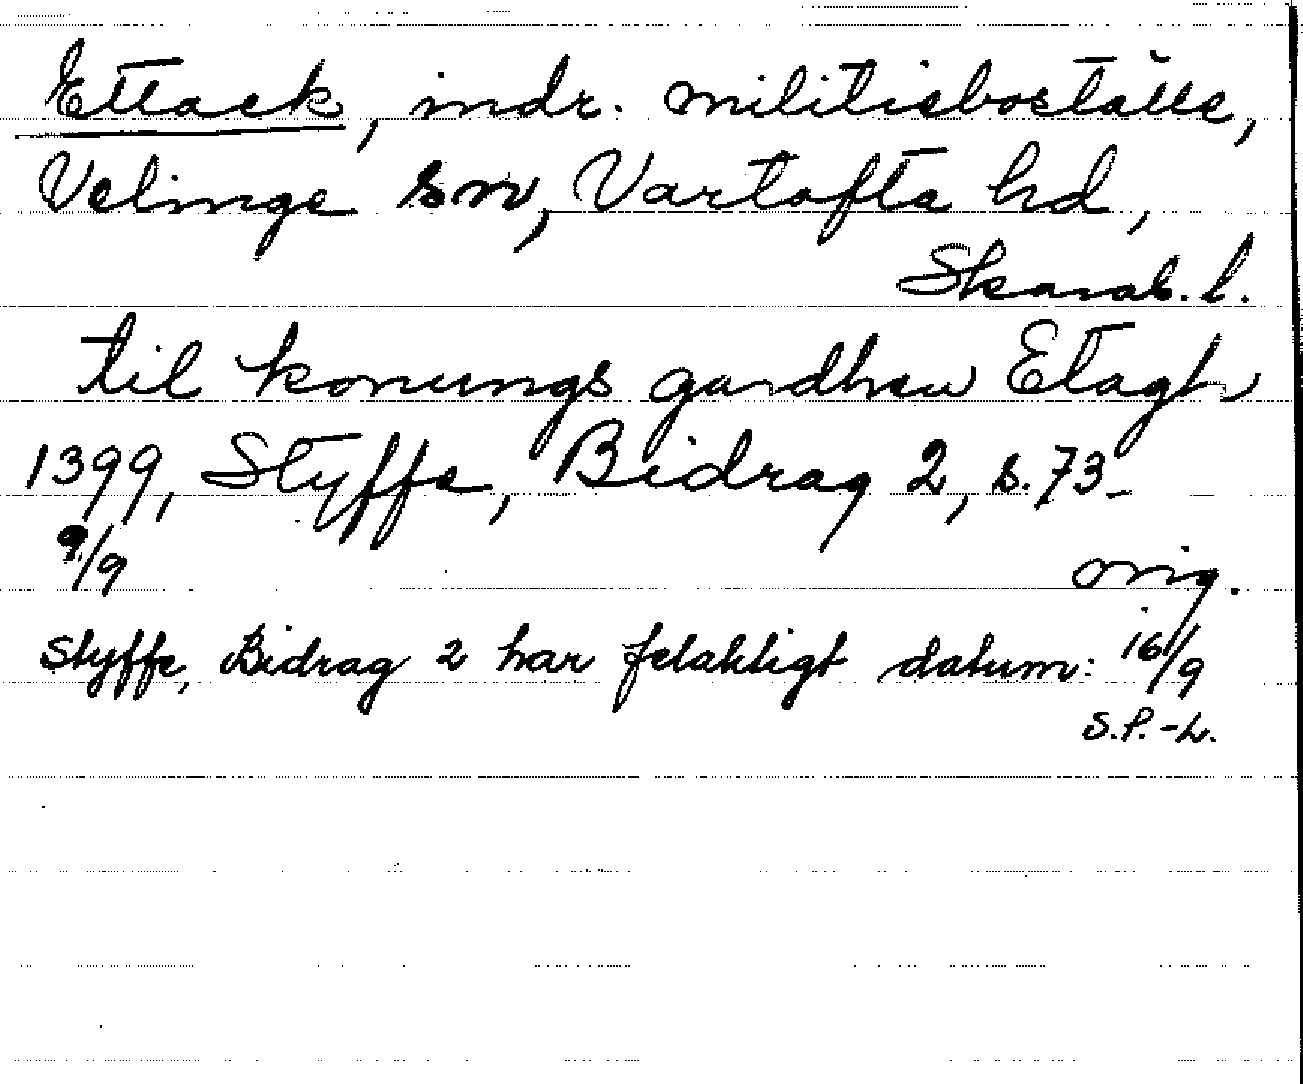 Ettack, indr. militieboställe,
Velinge sn, Vartofta hd,
Skarab. l.
til konungs gardhen Etagh
1399, Styffe, Bidrag 2, s. 73-
9/9 orig.
Styffe, Bidrag 2 har felaktigt datum: 16/9
S.P.-L.